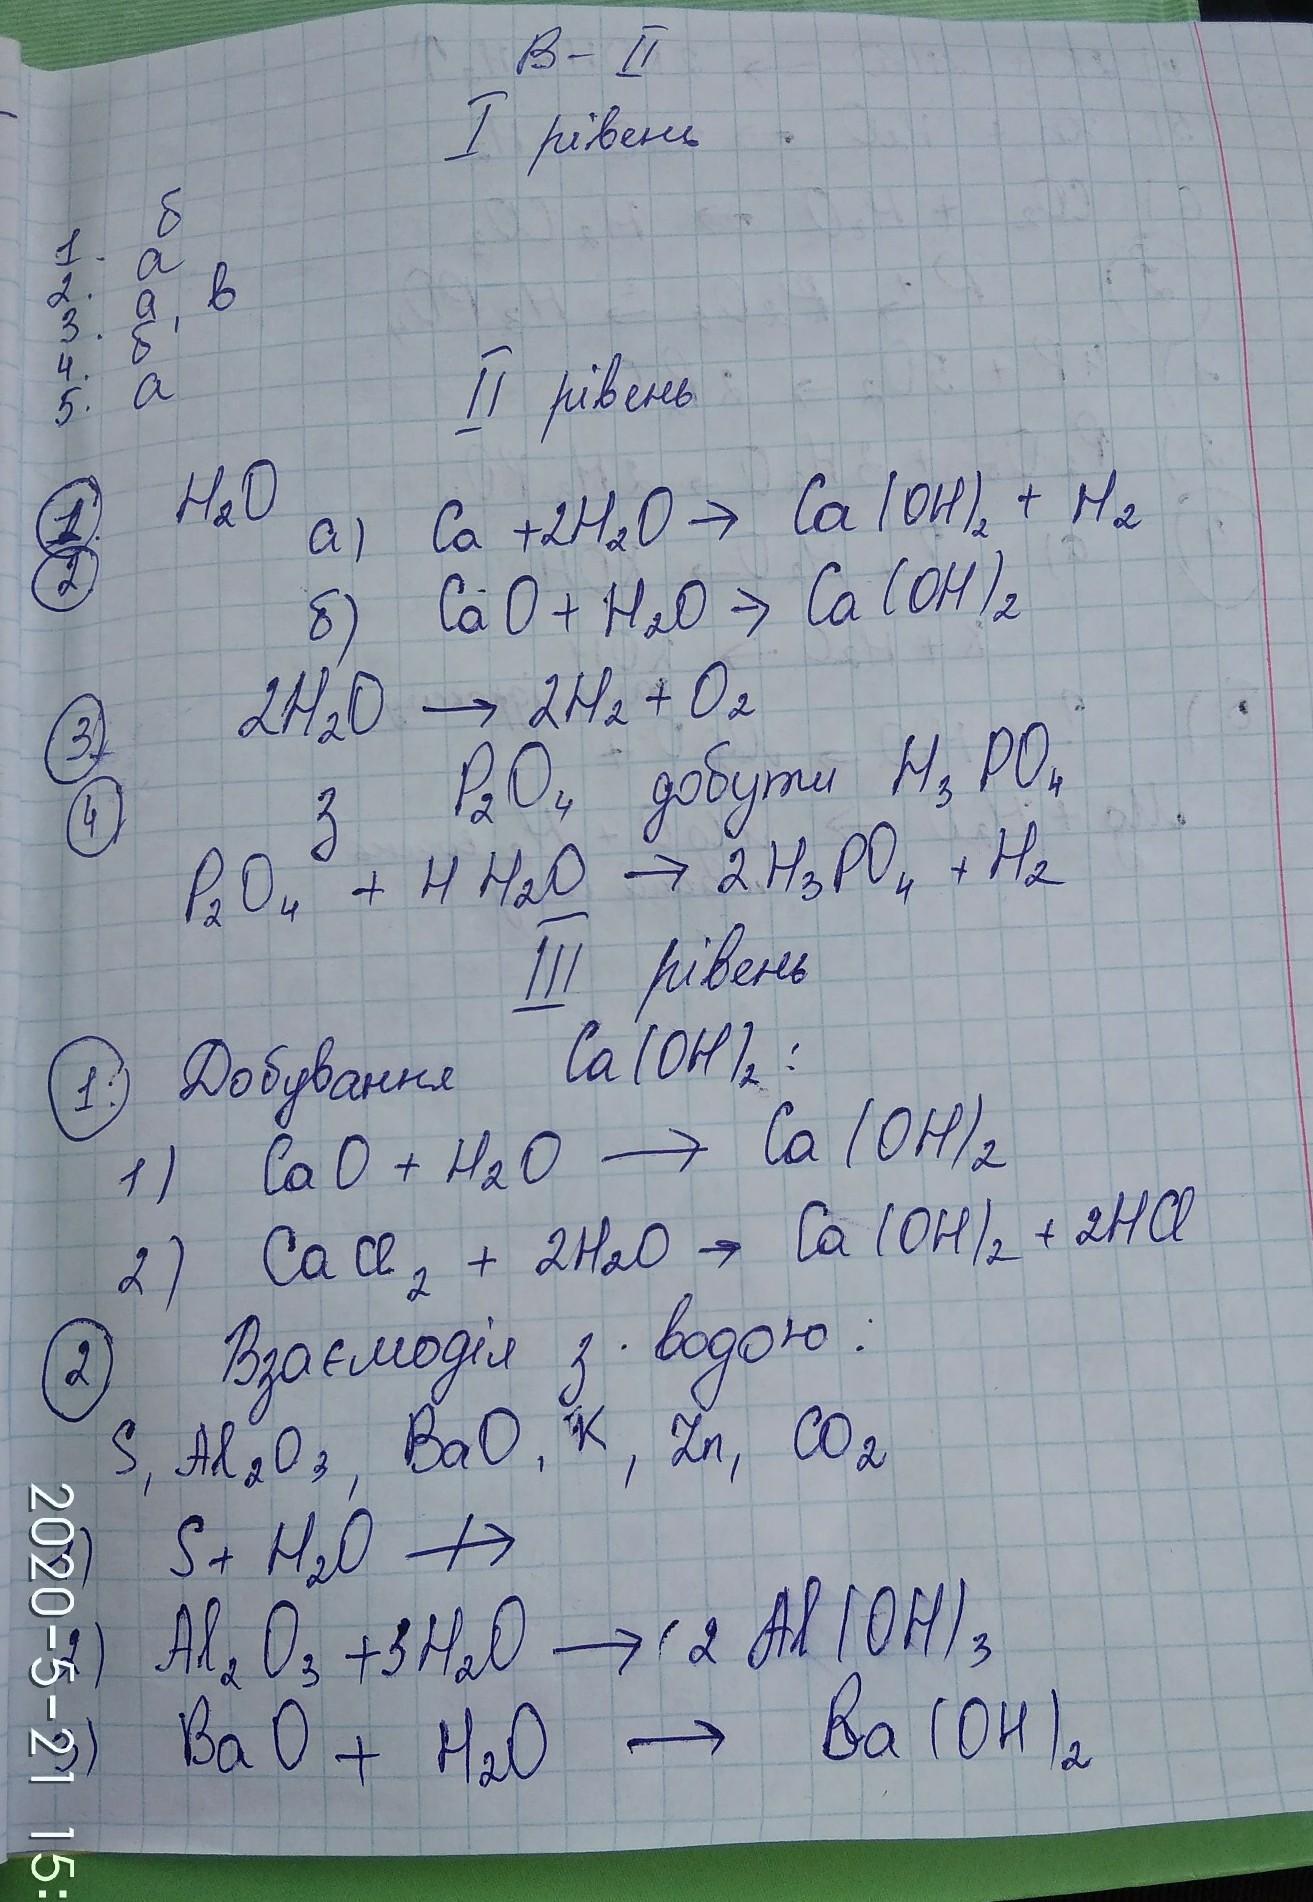 В - II
I рівень
1. б
2. а
3. а, в
4. б
5. а
II рівень
1. H₂O
2 а) Ca + 2H₂O → Ca(OH)₂ + H₂
б) CaO + H₂O → Ca(OH)₂
3. 2H₂O → 2H₂ + O₂
4 З P₂O₄ добути H₃PO₄
P₂O₄ + 4H₂O → 2H₃PO₄ + H₂
III рівень
1. Добування Ca(OH)₂:
1) CaO + H₂O → Ca(OH)₂
2) CaCl₂ + 2H₂O → Ca(OH)₂ + 2HCl
2 Взаємодія з водою:
S, Al₂O₃, BaO, K, Zn, CO₂
1) S + H₂O ↛
2) Al₂O₃ + 3H₂O → 2Al(OH)₃
3) BaO + H₂O → Ba(OH)₂
2020-5-21 15: